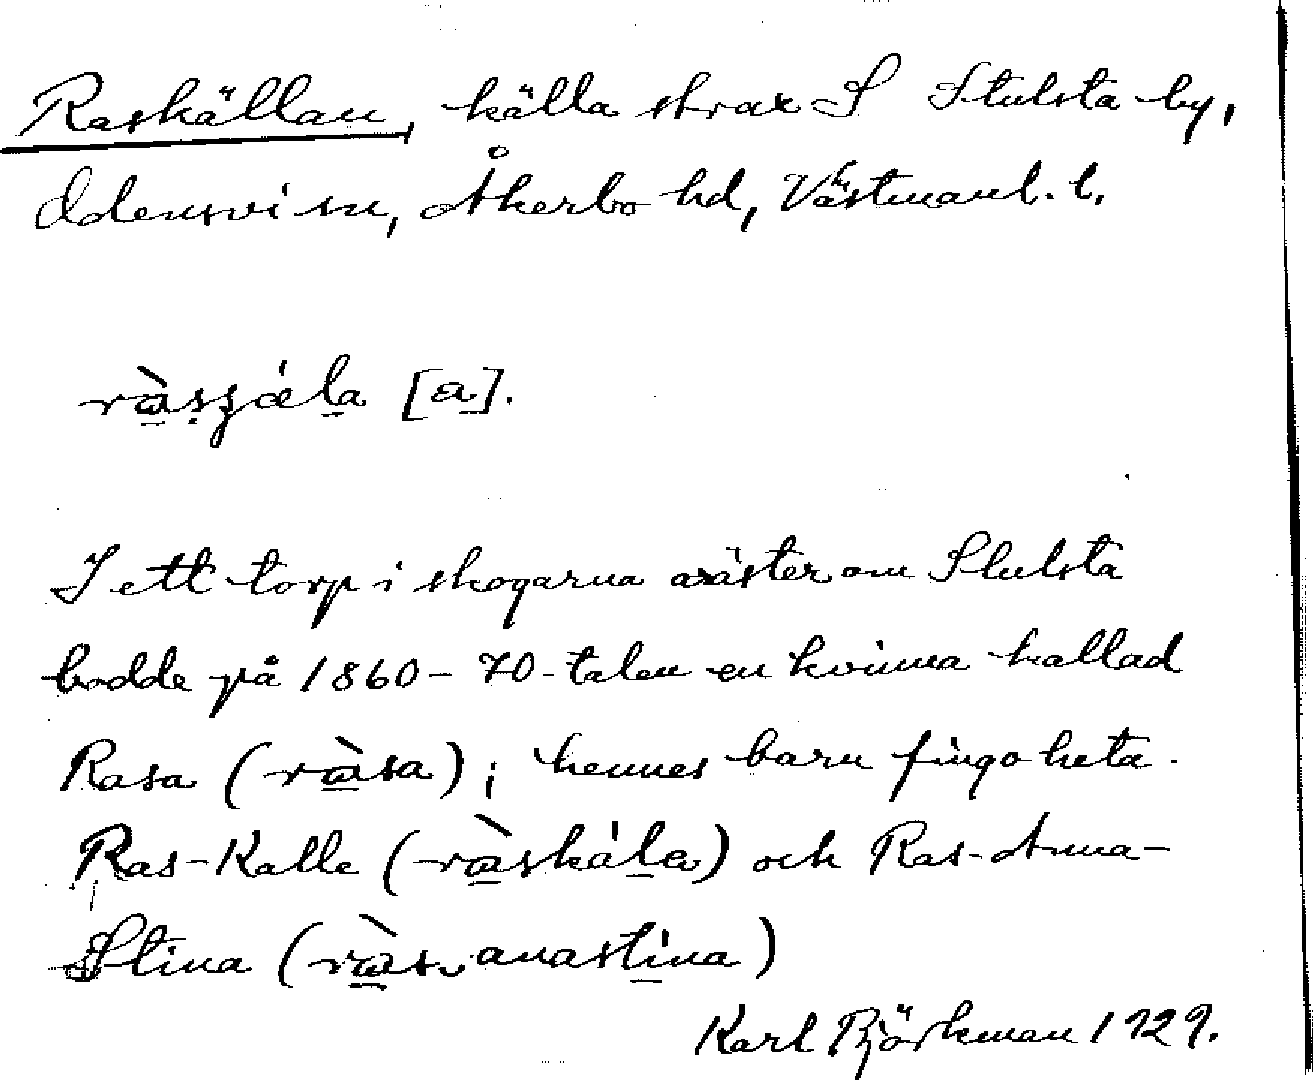 Raskällan, källa strax S Stulsta by,
Odensvi sn, Åkerbo hd, Västmanl. l.
ràsʂǽla [a].
I ett torp i skogarna väster om Stulsta
bodde på 1860-70-talen en kvinna kallad
Rasa (ràsa); hennes barn fingo heta
Ras-Kalle (ràskála) och Ras-Anna-
Stina (ràs anastína)
Karl Björkman 1929.